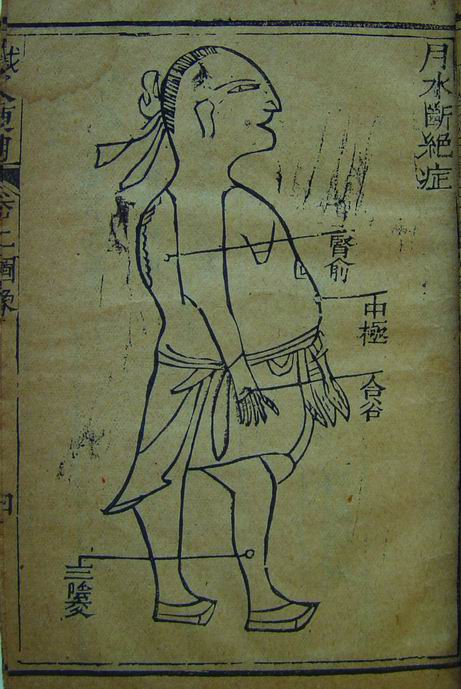 月水斷絕症
腎俞
中極
合谷
三陰交
鍼灸便用
圖像